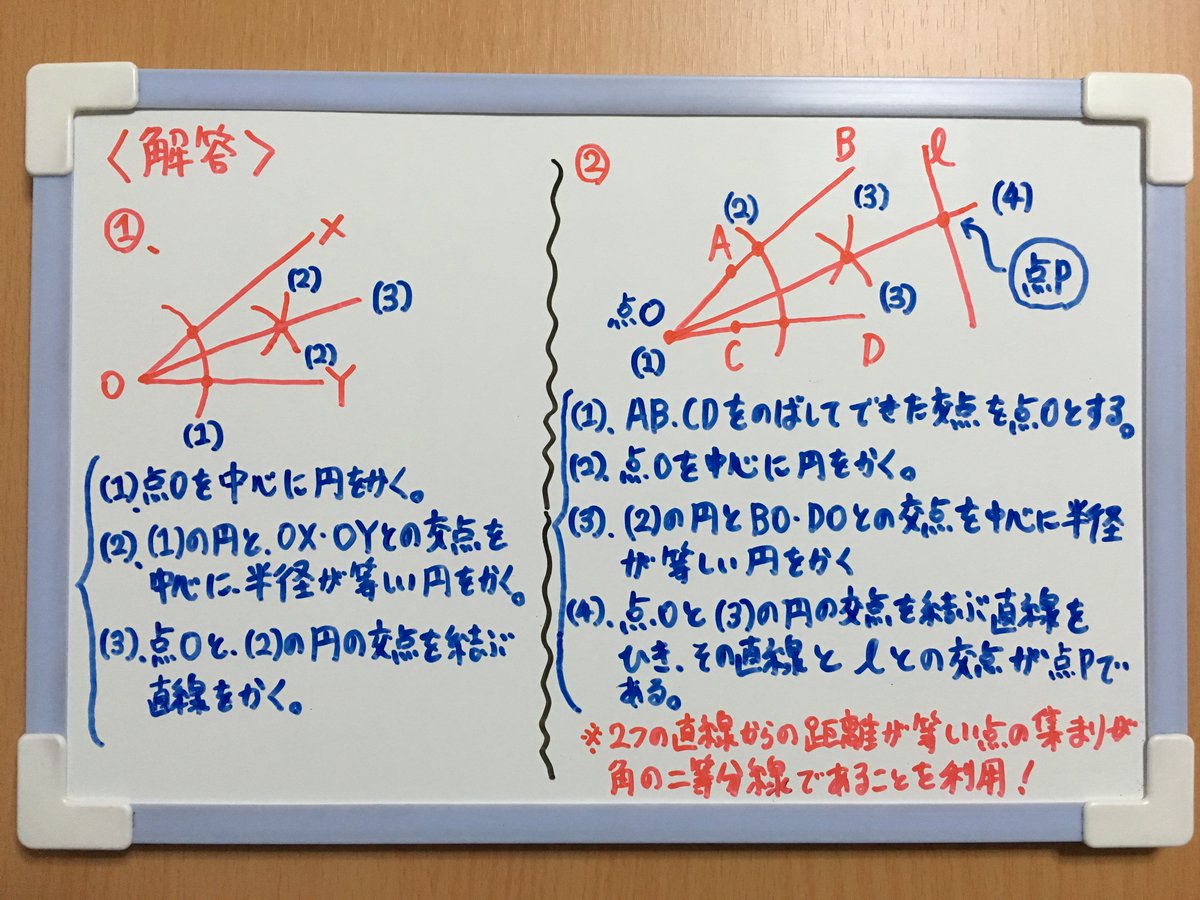 〈解答〉
①.
X
(2)
(3)
O
(2)
Y
(1)
(1).点Oを中心に円をかく。
(2).(1)の円と、OX・OYとの交点を
中心に、半径が等しい円をかく。
(3).点Oと、(2)の円の交点を結ぶ
直線をかく。
②
B
l
(2)
(3)
(4)
A
点P
点O
(3)
(1)
C
D
(1).AB.CDをのばしてできた交点を点Oとする。
(2).点Oを中心に円をかく。
(3).(2)の円とBO・DOとの交点を中心に半径
が等しい円をかく
(4).点Oと(3)の円の交点を結ぶ直線を
ひき、その直線とlとの交点が点Pで
ある。
※2つの直線からの距離が等しい点の集まりが
角の二等分線であることを利用!